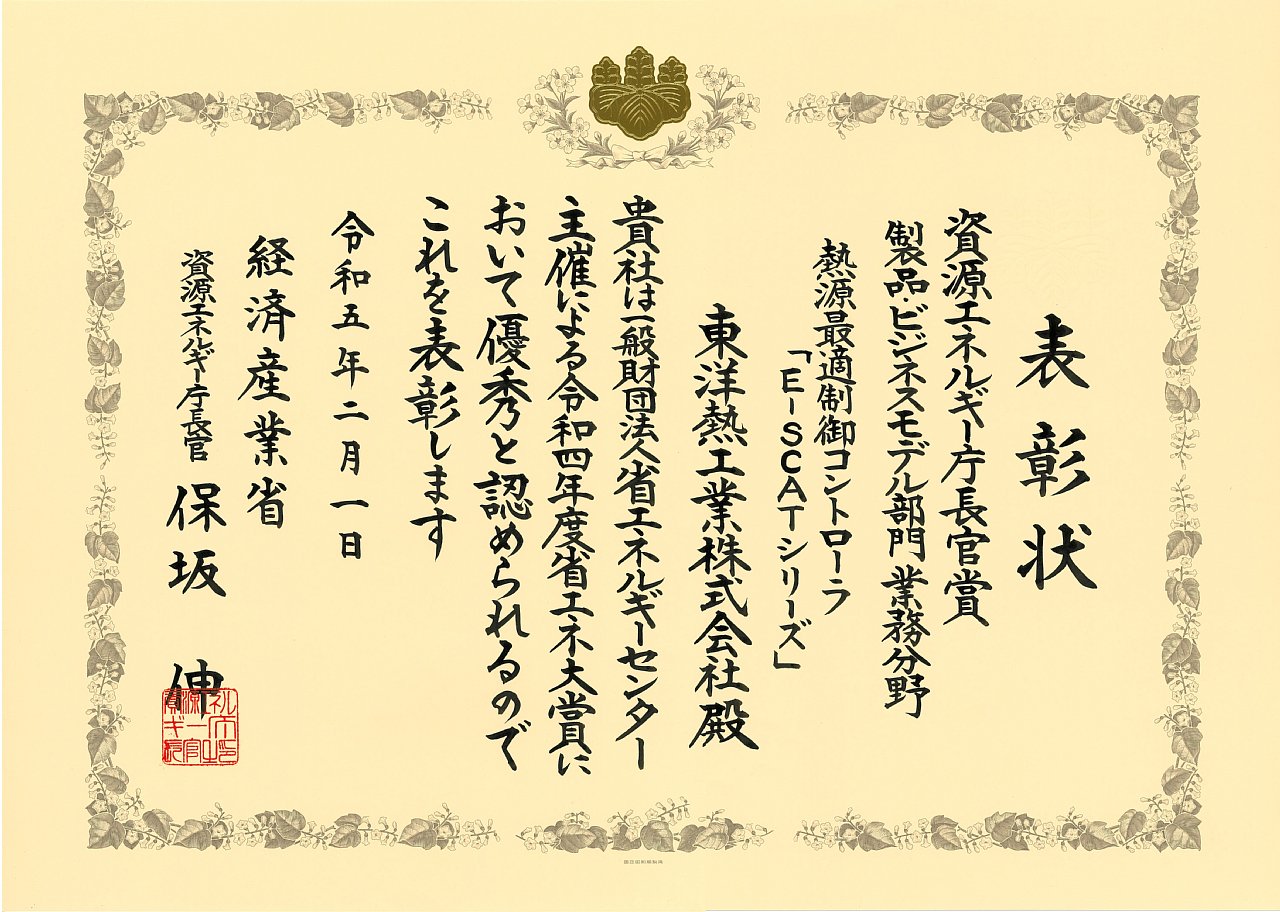 表彰状
資源エネルギー庁長官賞
製品・ビジネスモデル部門 業務分野
熱源最適制御コントローラ
「E-SCATシリーズ」
東洋熱工業株式会社殿
貴社は一般財団法人省エネルギーセンター
主催による令和四年度省エネ大賞に
おいて優秀と認められるので
これを表彰します
令和五年二月一日
経済産業省
資源エネルギー庁長官 保坂 伸